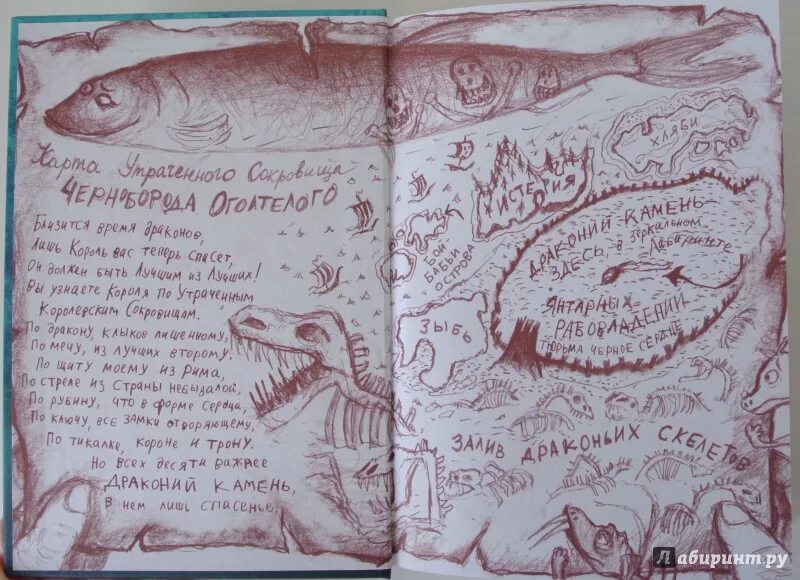 Карта Утраченного Сокровища
ЧЕРНОБОРОДА ОГОЛТЕЛОГО
Близится время драконов,
лишь Король вас теперь спасет,
Он должен быть Лучшим из Лучших!
Вы узнаете Короля по Утраченным
Королевским Сокровищам.
По дракону, клыков лишенному,
По мечу, из лучших второму,
По щиту моему из Рима,
По стреле из Страны небывалой,
По рубину, что в форме сердца,
По ключу, все замки отворяющему,
По тикалке, короне и трону.
Но всех десяти важнее
ДРАКОНИЙ КАМЕНЬ,
В нем лишь спасенье.
ХЛЯБИ
ИСТЕРИЯ
БОЙ-
БАБЬИ
ОСТРОВА
ЗЫБЬ
ДРАКОНИЙ КАМЕНЬ
ЗДЕСЬ, в зеркальном
Лабиринте
ЯНТАРНЫХ
РАБОВЛАДЕНИЙ
ТЮРЬМА ЧЕРНОЕ СЕРДЦЕ
ЗАЛИВ ДРАКОНЬИХ СКЕЛЕТОВ
Лабиринт.ру